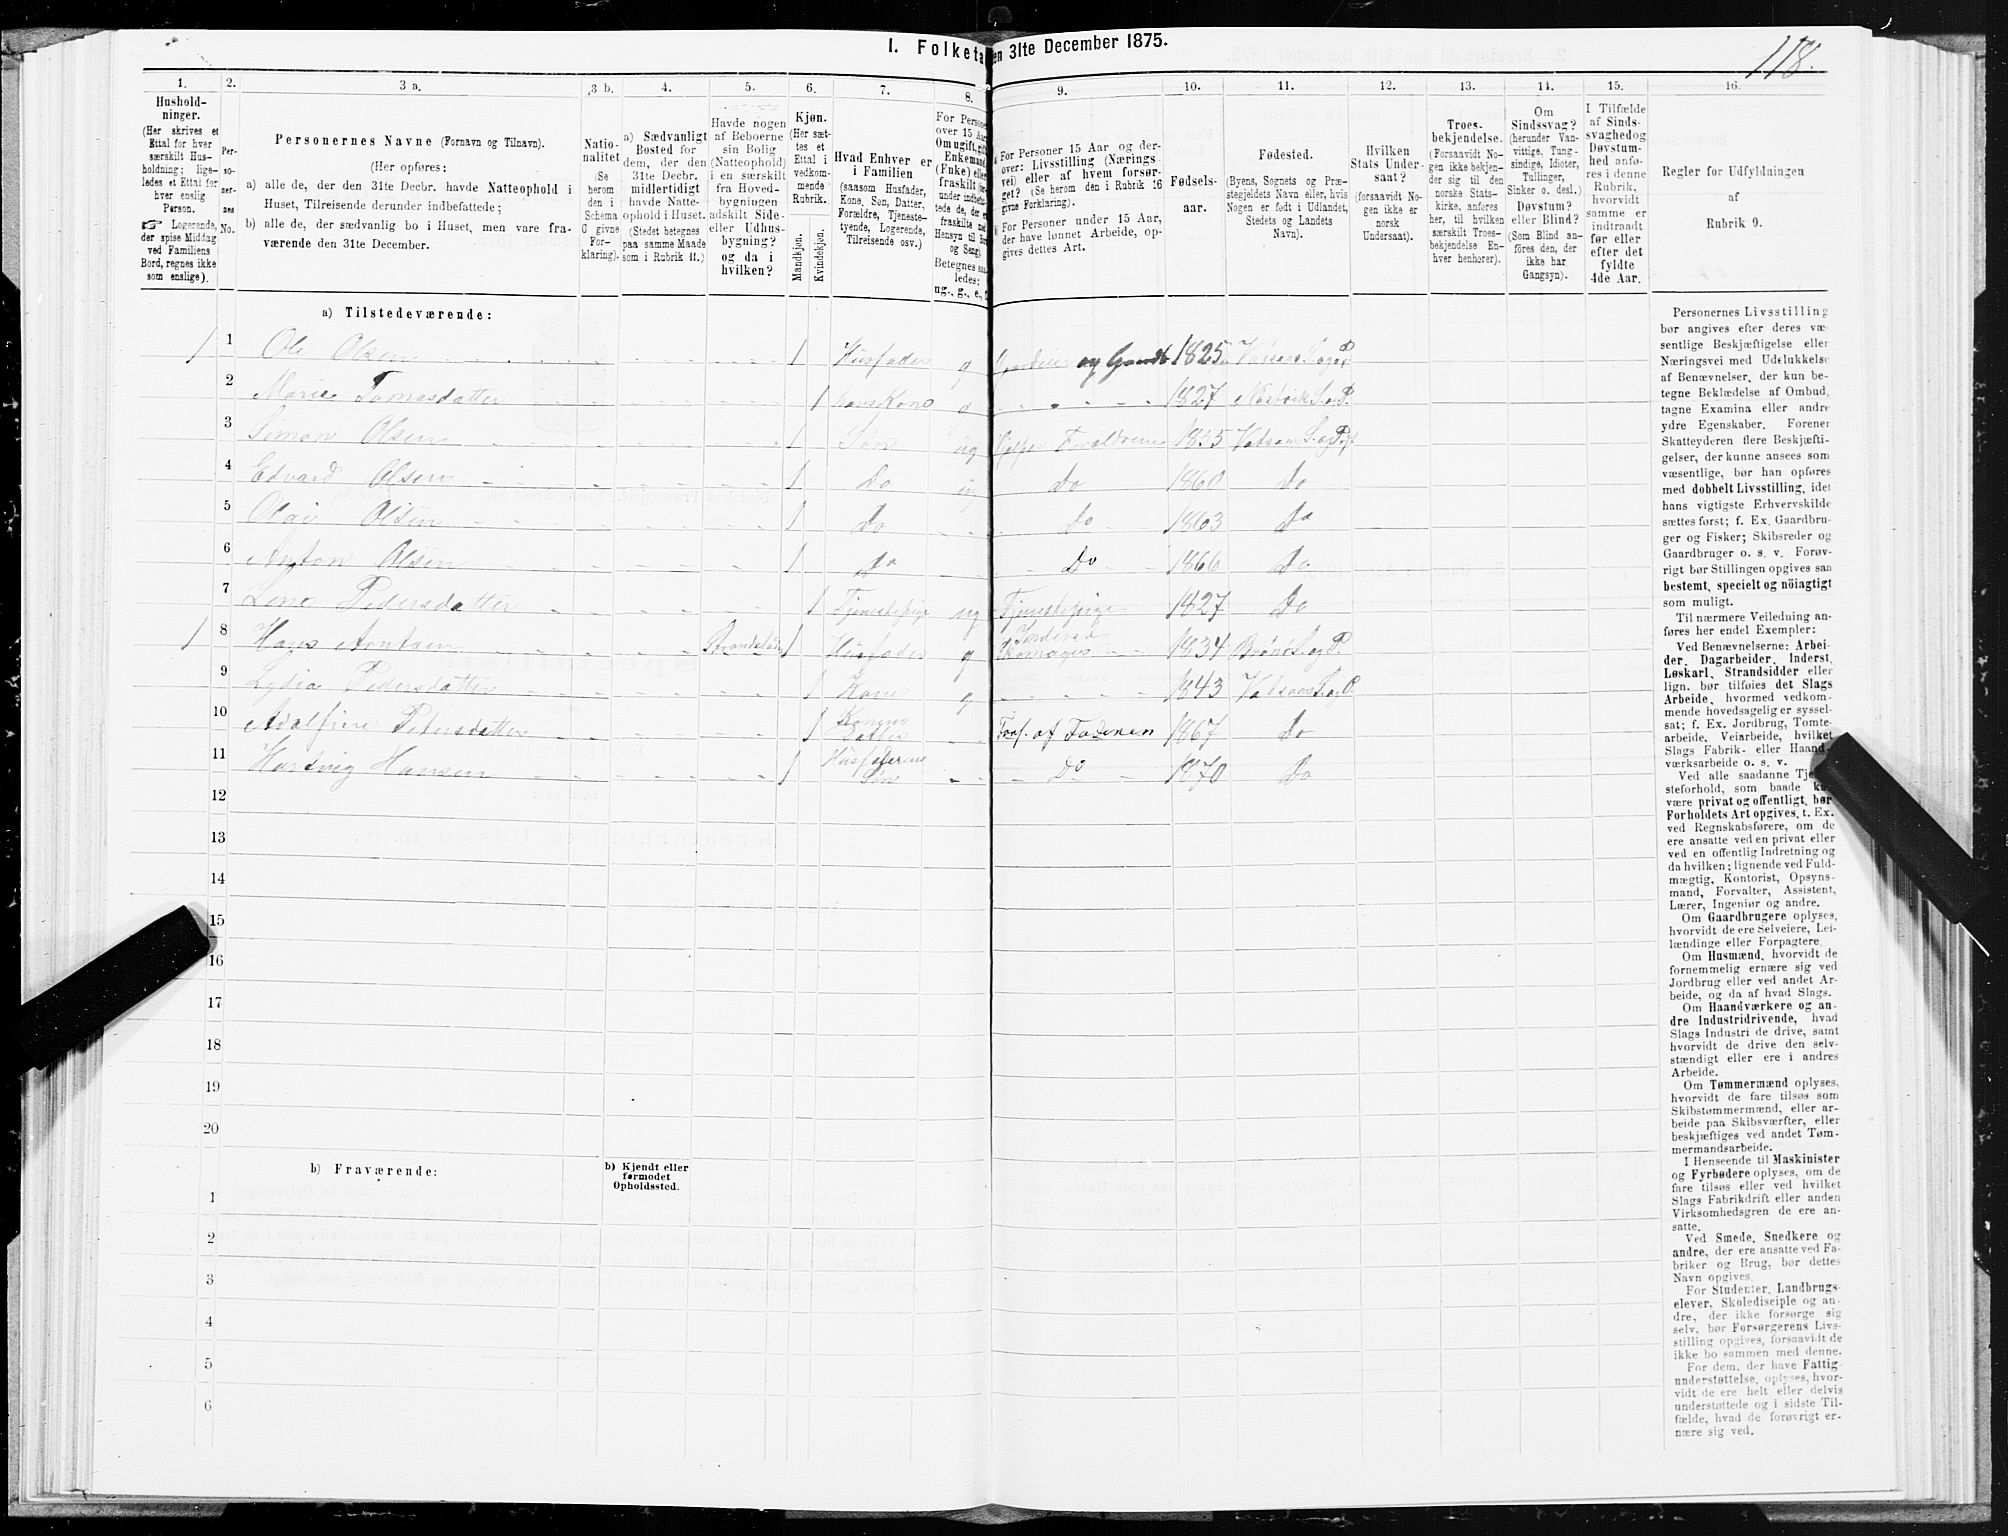 I. Folketa en 31te December 1875.
118.
1. 2. 3 a. 3 b. 4. 5. 6. 7. 8. 9. 10. 11. 12. 13. 14. 15. 16.
Hushold-
ninger.
(Her skrives et
Ettal for hver
særskilt Hus-
holdning; lige-
ledes et Ettal for
hver enslig
Person.
Logerende,
der spise Middag
ved Familiens
Bord, regnes ikke
som enslige).
Per-
so-
ner-
nes
No.
Personernes Navne (Fornavn og Tilnavn).
(Her opføres:
a) alle de, der den 31te Decbr. havde Natteophold i
Huset, Tilreisende derunder indbefattede;
b) alle de, der sædvanlig bo i Huset, men vare fra-
værende den 31te December.
Natio-
nalitet
(Se
herom
den i
Schema
C givne
For-
klaring).
a) Sædvanligt
Bosted for
dem, der den
31te Decbr.
midlertidigt
havde Natte-
ophold i Huset.
(Stedet betegnes
paa samme Maade
som i Rubrik 11.)
Havde nogen
af Beboerne
sin Bolig
(Natteophold)
i en særskilt
fra Hoved-
bygningen
adskilt Side-
eller Udhus-
bygning?
og da i
hvilken?
Kjøn.
(Her sæt-
tes et
Ettal i
vedkom-
mende
Rubrik.
Mandkjøn.
Kvindekjøn.
Hvad Enhver er
i Familien
(saasom Husfader,
Kone, Søn, Datter,
Forældre, Tjeneste-
tyende, Logerende,
Tilreisende osv.)
For Persone
over 15 Aar
Om ugift, gift
Enkemand
(Enke) eller
fraskilt
Betegnes saa-
ledes:
ug., g., e.,
For Personer 15 Aar og der-
over: Livsstilling (Nærings-
vei) eller af hvem forsør-
get? (Se herom den i Rubrik 16
givne Forklaring).
For Personer under 15 Aar,
der have lønnet Arbeide, op-
gives dettes Art.
Fødsels-
aar.
Fødested.
(Byens, Sognets og Præ-
stegjeldets Navn eller, hvis
Nogen er født i Udlandet,
Stedets og Landets
Navn).
Hvilken
Stats Under-
saat?
(forsaavidt No-
gen ikke er
norsk
Undersaat).
Troes-
bekjendelse.
(Forsaavidt No-
gen ikke bekjen-
der sig til den
norske Stats-
kirke, anføres
her, til hvilken
særskilt Troes-
bekjendelse En-
hver henhører).
Om
Sindssvag?
(herunder Van-
vittige, Tung-
sindige, Idioter,
Tullinger,
Sinker o. desl.)
Døvstum?
eller Blind?
(Som Blind an-
føres den, der
ikke har
Gangsyn).
I Tilfælde
af Sinds-
svaghedog
Døvstum-
hed anfø-
res i denne
Rubrik,
hvorvidt
samme er
indtraadt
før eller
efter det
fyldte
4de Aar.
Regler for Udfyldningen
af
Rubrik 9.
a) Tilstedeværende:
1 1 Ole Olsen 1 Husfader g og Gaardb 1825 S. og P.
2 Marie Tomasdatter 1 hans Kone g 1827 S. og P.
3 Simon Olsen 1 Søn ug Forældrene 1855
4 Edvard Olsen 1 Do Do 1860 Do
5 Olai Olsen 1 Do Do 1863 Do
6 Anton Olsen 1 Do Do 1866 Do
7 Lene Pedersdatter 1 Tjenestepige ug Tjenestepige 1827 Do
1 8 Hans Arntsen 1 Husfader g 1834 Brønø S. og P.
9 Lydia Pedersdatter 1 Kone g 1843
10 Adalfine Petersdatter 1 Konens Datter Fors. af Faderen 1867 Do
11 Hartvig Hansen 1 Husfaderens Søn Do 1870 Do
12
13
14
15
16
17
18
19
20
b) Fraværende:
b) Kjendt eller
formodet
Opholdssted.
1
2
3
4
5
6
Personernes Livsstilling
bør angives efter deres væ-
sentlige Beskjæftigelse eller
Næringsvei med Udelukkelse
af Benævnelser, der kun be-
tegne Beklædelse af Ombud,
tagne Examina eller andre
ydre Egenskaber. Forener
Skatteyderen flere Beskjæfti-
gelser, der kunne ansees som
væsentlige, bør han opføres
med dobbelt Livsstilling, idet
hans vigtigste Erhvervskilde
sættes først; f. Ex. Gaardbru-
ger og Fisker; Skibsreder og
Gaardbruger o. s. v. Forøv-
rigt bør Stillingen opgives saa
bestemt, specielt og nöiagtigt
som muligt.
Til nærmere Veiledning an-
føres her endel Exempler:
Ved Benævnelserne: Arbei-
der, Dagarbeider, Inderst,
Løskarl, Strandsidder eller
lign. bør tilføies det Slags
Arbeide, hvormed vedkom-
mende hovedsagelig er syssel-
sat; f. Ex. Jordbrug, Tomte-
arbeide, Veiarbeide, hvilket
Slags Fabrik- eller Haand-
værksarbeide o. s. v.
Ved alle saadanne Tje-
steforhold, som baade
være privat og offentligt, bør
Forholdets Art opgives, t. Ex.
ved Regnskabsførere, om de
ere ansatte ved en privat eller
ved en offentlig Indretning og
da hvilken; lignende ved Fuld-
mægtig, Kontorist, Opsyns-
mand, Forvalter, Assistent,
Lærer, Ingeniør og andre.
Om Gaardbrugere oplyses,
hvorvidt de ere Selveiere, Lei-
lændinge eller Forpagtere.
Om Husmænd, hvorvidt de
fornemmelig ernære sig ved
Jordbrug eller ved andet Ar-
beide, og da af hvad Slags.
Om Haandværkere og an-
dre Industridrivende, hvad
Slags Industri de drive, samt
hvorvidt de drive den selv-
stændigt eller ere i andres
Arbeide.
Om Tømmermænd oplyses,
hvorvidt de fare tilsøs som
Skibstømmermænd, eller ar-
beide paa Skibsværfter, eller
beskjæftiges ved andet Tøm-
mermandsarbeide.
I Henseende til Maskinister
og Fyrbødere oplyses, om de
fare tilsøs eller ved hvilket
Slags Fabrikdrift eller anden
Virksomhedsgren de ere an-
satte.
Ved Smede, Snedkere og
andre, der ere ansatte ved Fa-
briker og Brug, bør dettes
Navn opgives.
For Studenter, Landbrugs-
elever, Skoledisciple og an-
dre, der ikke forsørge sig
selv, bør Forsørgerens Livs-
stilling opgives, forsaavidt de
ikke bo sammen med denne.
For dem, der have Fattig-
understøttelse, oplyses, hvor-
vidt de ere helt eller delvis
understøttede og i sidste Til-
fælde, hvad de forøvrigt er-
nære sig ved.